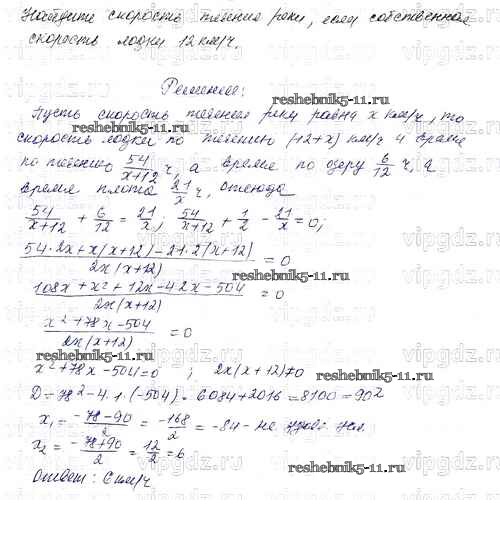 Найдите скорость течения реки, если собственная
скорость лодки 12 км/ч.
Решение:
reshebnik5-11.ru
Пусть скорость течения реки равна x км/ч, то
скорость лодки по течению (12+x) км/ч и время
по течению 54/(x+12) ч, а время по озеру 6/12 ч, а
время плота 21/x ч, отсюда
54/(x+12) + 6/12 = 21/x; 54/(x+12) + 1/2 - 21/x = 0;
(54·2x+x(x+12)-21·2(x+12))/(2x(x+12)) = 0
reshebnik5-11.ru
(108x+x²+12x-42x-504)/(2x(x+12)) = 0
(x²+78x-504)/(2x(x+12)) = 0
reshebnik5-11.ru
x²+78x-504=0 ; 2x(x+12)≠0
D=78²-4·1·(-504)=6084+2016=8100=90²
x₁= (-78-90)/2 = -168/2 = -84 - не удовл.
x₂= (-78+90)/2 = 12/2 = 6
reshebnik5-11.ru
Ответ: 6 км/ч
vipgdz.ru